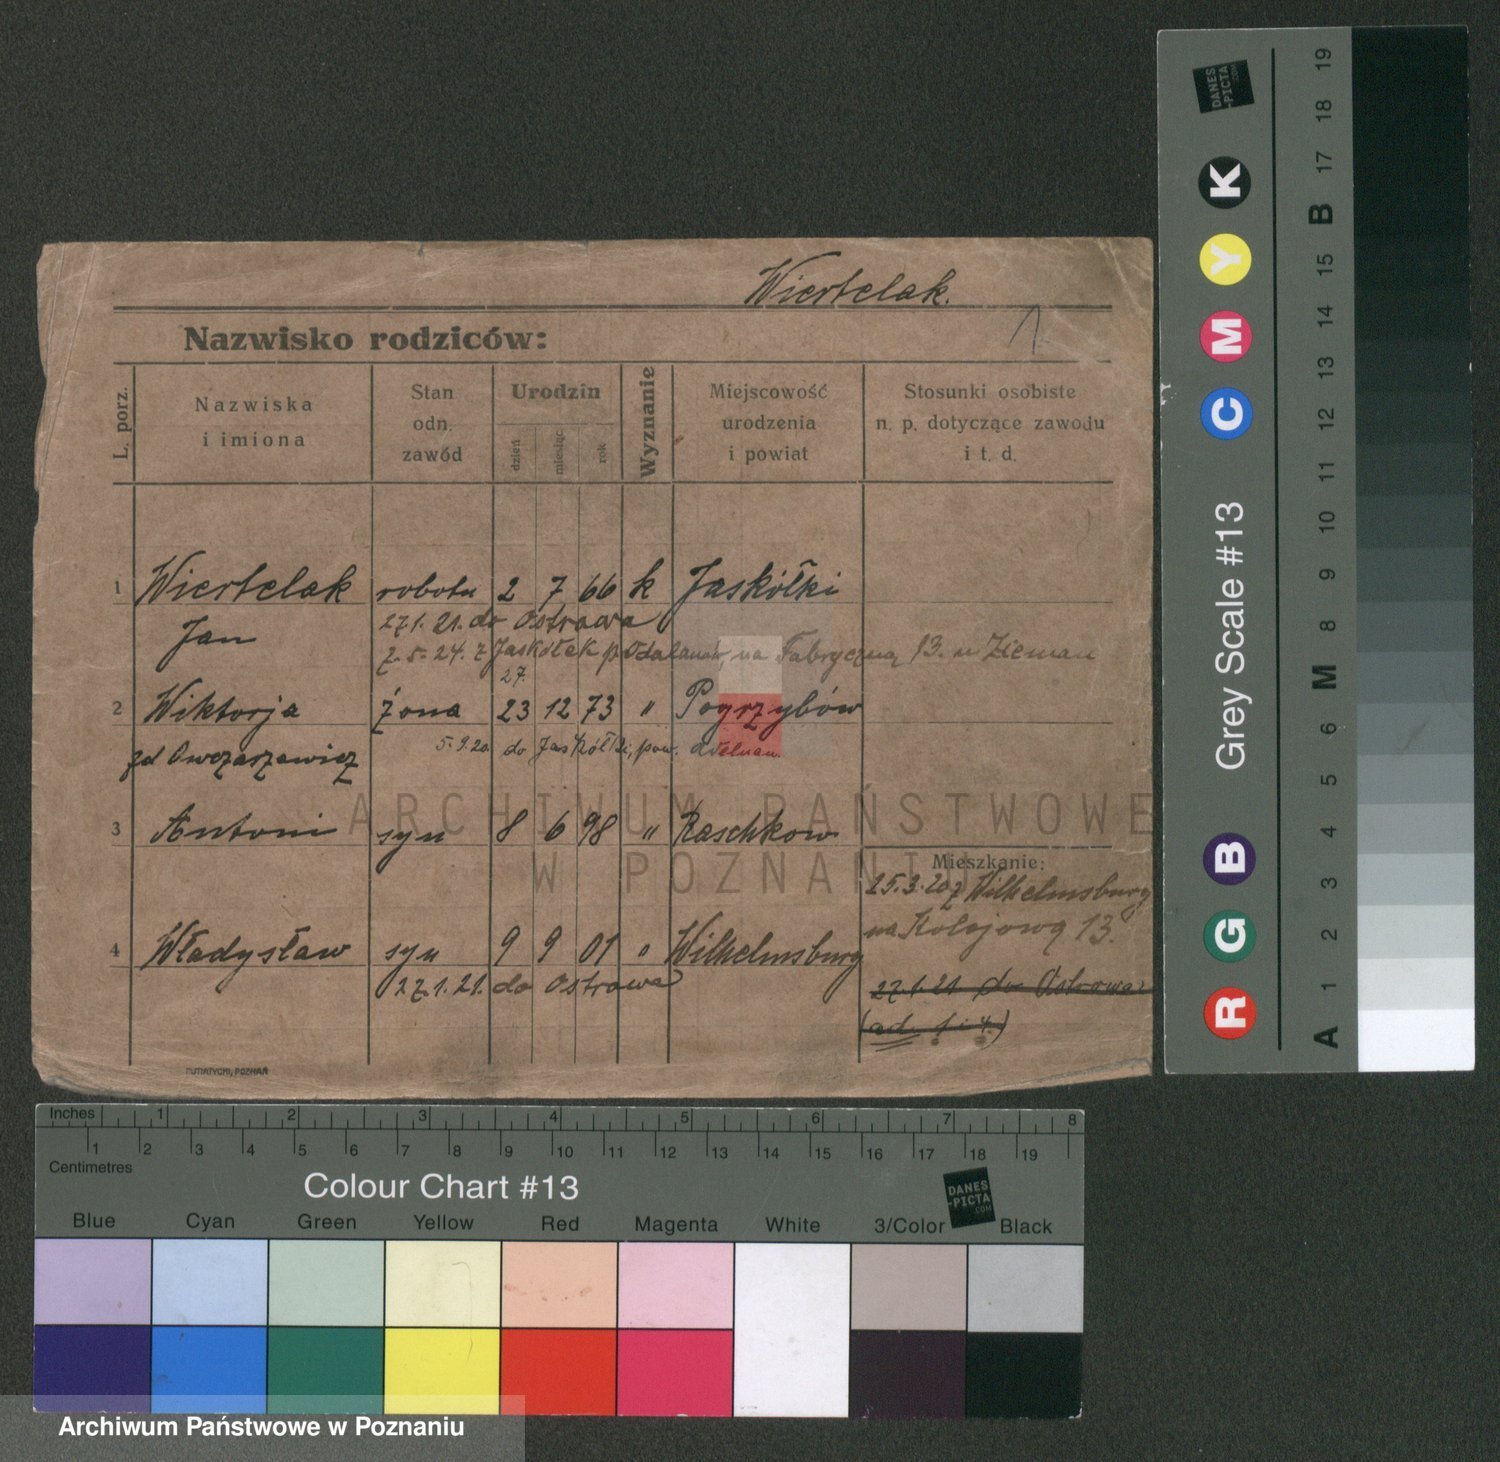 Wiertelak.
Nazwisko rodziców:
1
L. porz.
Nazwiska
i imiona
Stan
odn.
zawód
Urodzin
dzień
miesiąc
rok
Wyznanie
Miejscowość
urodzenia
i powiat
Stosunki osobiste
n. p. dotyczące zawodu
i t. d.
1 Wiertelak robotn 2 7 66 k Jaskółki
27.1.21. do Ostrowa
Jan
7.5.24. z Jaskółek p. Odolanów, na Fabryczną 13. u Zieman
27.
2 Wiktorja żona 23 12 73 " Pogrzybów
5.9.20. do Jaskółki, pow.
zd Owczarzewicz
3 Antoni syn 8 6 98 " Raschkow
Mieszkanie:
25.3.20 z Wilhelmsburg
na Kolejową 13.
4 Władysław syn 9 9 01 " Wilhelmsburg
27.1.21. do Ostrowa
27.1.21 do Ostrowa
(ad. 1 i 4.)
PUTIATYCKI, POZNAŃ
ARCHIWUM PAŃSTWOWE
W POZNANIU
Inches 1 2 3 4 5 6 7 8
1 2 3 4 5 6 7 8 9 10 11 12 13 14 15 16 17 18 19
Centimetres
Colour Chart #13
DANES
-PICTA
.COM
Blue Cyan Green Yellow Red Magenta White 3/Color Black
Grey Scale #13
DANES
-PICTA
.COM
R G B C M Y K
A 1 2 3 4 5 6 M 8 9 10 11 12 13 14 15 B 17 18 19
Archiwum Państwowe w Poznaniu